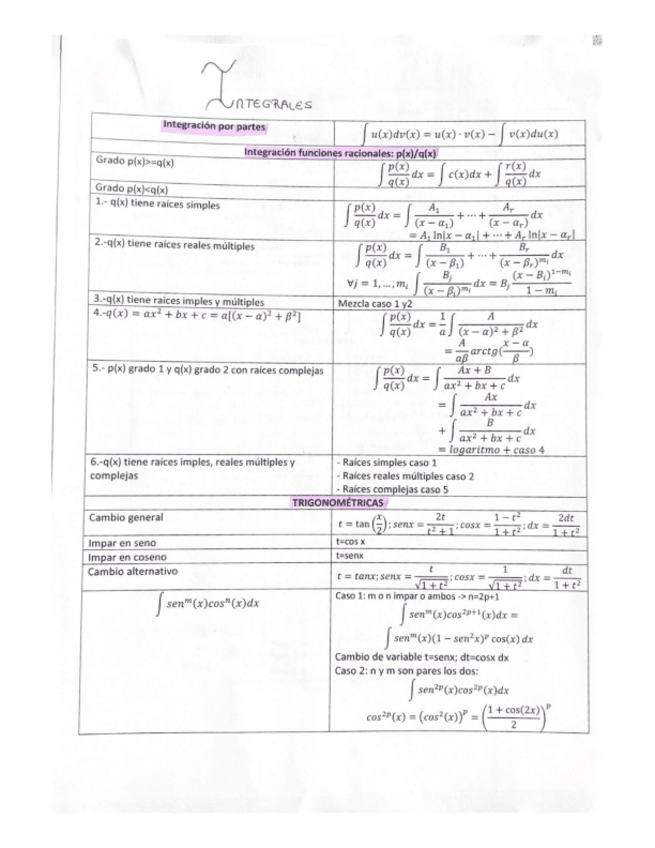 INTEGRALES
Integración por partes
∫ u(x)dv(x) = u(x) · v(x) − ∫ v(x)du(x)
Integración funciones racionales: p(x)/q(x)
Grado p(x)>=q(x)
∫ p(x)/q(x) dx = ∫ c(x)dx + ∫ r(x)/q(x) dx
Grado p(x)<q(x)
1.- q(x) tiene raíces simples
∫ p(x)/q(x) dx = ∫ A₁/(x − α₁) + ⋯ + Aᵣ/(x − αᵣ) dx
= A₁ ln|x − α₁| + ⋯ + Aᵣ ln|x − αᵣ|
2.-q(x) tiene raíces reales múltiples
∫ p(x)/q(x) dx = ∫ B₁/(x − β₁) + ⋯ + Bᵣ/(x − βᵣ)^mᵢ dx
∀j = 1, … , mᵢ ∫ Bⱼ/(x − βᵢ)^mᵢ dx = Bⱼ (x − Bᵢ)^(1−mᵢ)/(1 − mᵢ)
3.-q(x) tiene raíces imples y múltiples
Mezcla caso 1 y2
4.-q(x) = ax² + bx + c = a[(x − α)² + β²]
∫ p(x)/q(x) dx = 1/a ∫ A/((x − α)² + β²) dx
= A/(aβ) arctg((x − α)/β)
5.- p(x) grado 1 y q(x) grado 2 con raíces complejas
∫ p(x)/q(x) dx = ∫ (Ax + B)/(ax² + bx + c) dx
= ∫ Ax/(ax² + bx + c) dx
+ ∫ B/(ax² + bx + c) dx
= logaritmo + caso 4
6.-q(x) tiene raíces imples, reales múltiples y
complejas
- Raíces simples caso 1
- Raíces reales múltiples caso 2
- Raíces complejas caso 5
TRIGONOMÉTRICAS
Cambio general
t = tan(x/2); senx = 2t/(t² + 1); cosx = (1 − t²)/(1 + t²); dx = 2dt/(1 + t²)
Impar en seno
t=cos x
Impar en coseno
t=senx
Cambio alternativo
t = tanx; senx = t/√(1 + t²); cosx = 1/√(1 + t²); dx = dt/(1 + t²)
∫ senᵐ(x)cosⁿ(x)dx
Caso 1: m o n impar o ambos -> n=2p+1
∫ senᵐ(x)cos²ᵖ⁺¹(x)dx =
∫ senᵐ(x)(1 − sen²x)ᵖ cos(x) dx
Cambio de variable t=senx; dt=cosx dx
Caso 2: n y m son pares los dos:
∫ sen²ᵖ(x)cos²ᵖ(x)dx
cos²ᵖ(x) = (cos²(x))ᵖ = ((1 + cos(2x))/2)ᵖ